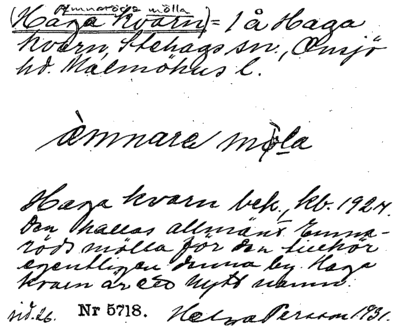 Emnaröds mölla
(Haga kvarn) = 1 å Haga
kvarn, Stehags sn, Onsjö
hd. Malmöhus l.
èmnare mǫ̀la
Haga kvarn bek., kb. 1927.
Den kallas allmänt Emna-
röds mölla för den tillhör
egentligen denna by. Haga
kvarn är ett nytt namn.
sid. 26. Nr 5718. Helga Persson 1931.